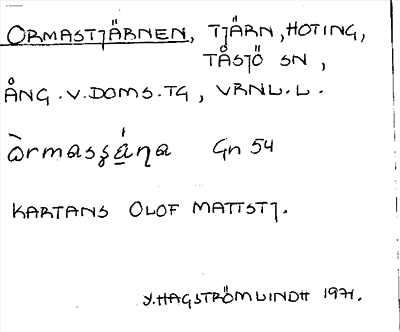 ORMASTJÄRNEN, TJÄRN, HOTING,
TÅSJÖ SN,
ÅNG. V. DOMS. TG, VRNL. L.
òrmasʂána Gn 54
KARTANS OLOF MATTSTJ.
Y. HAGSTRÖM LINDH 1971.